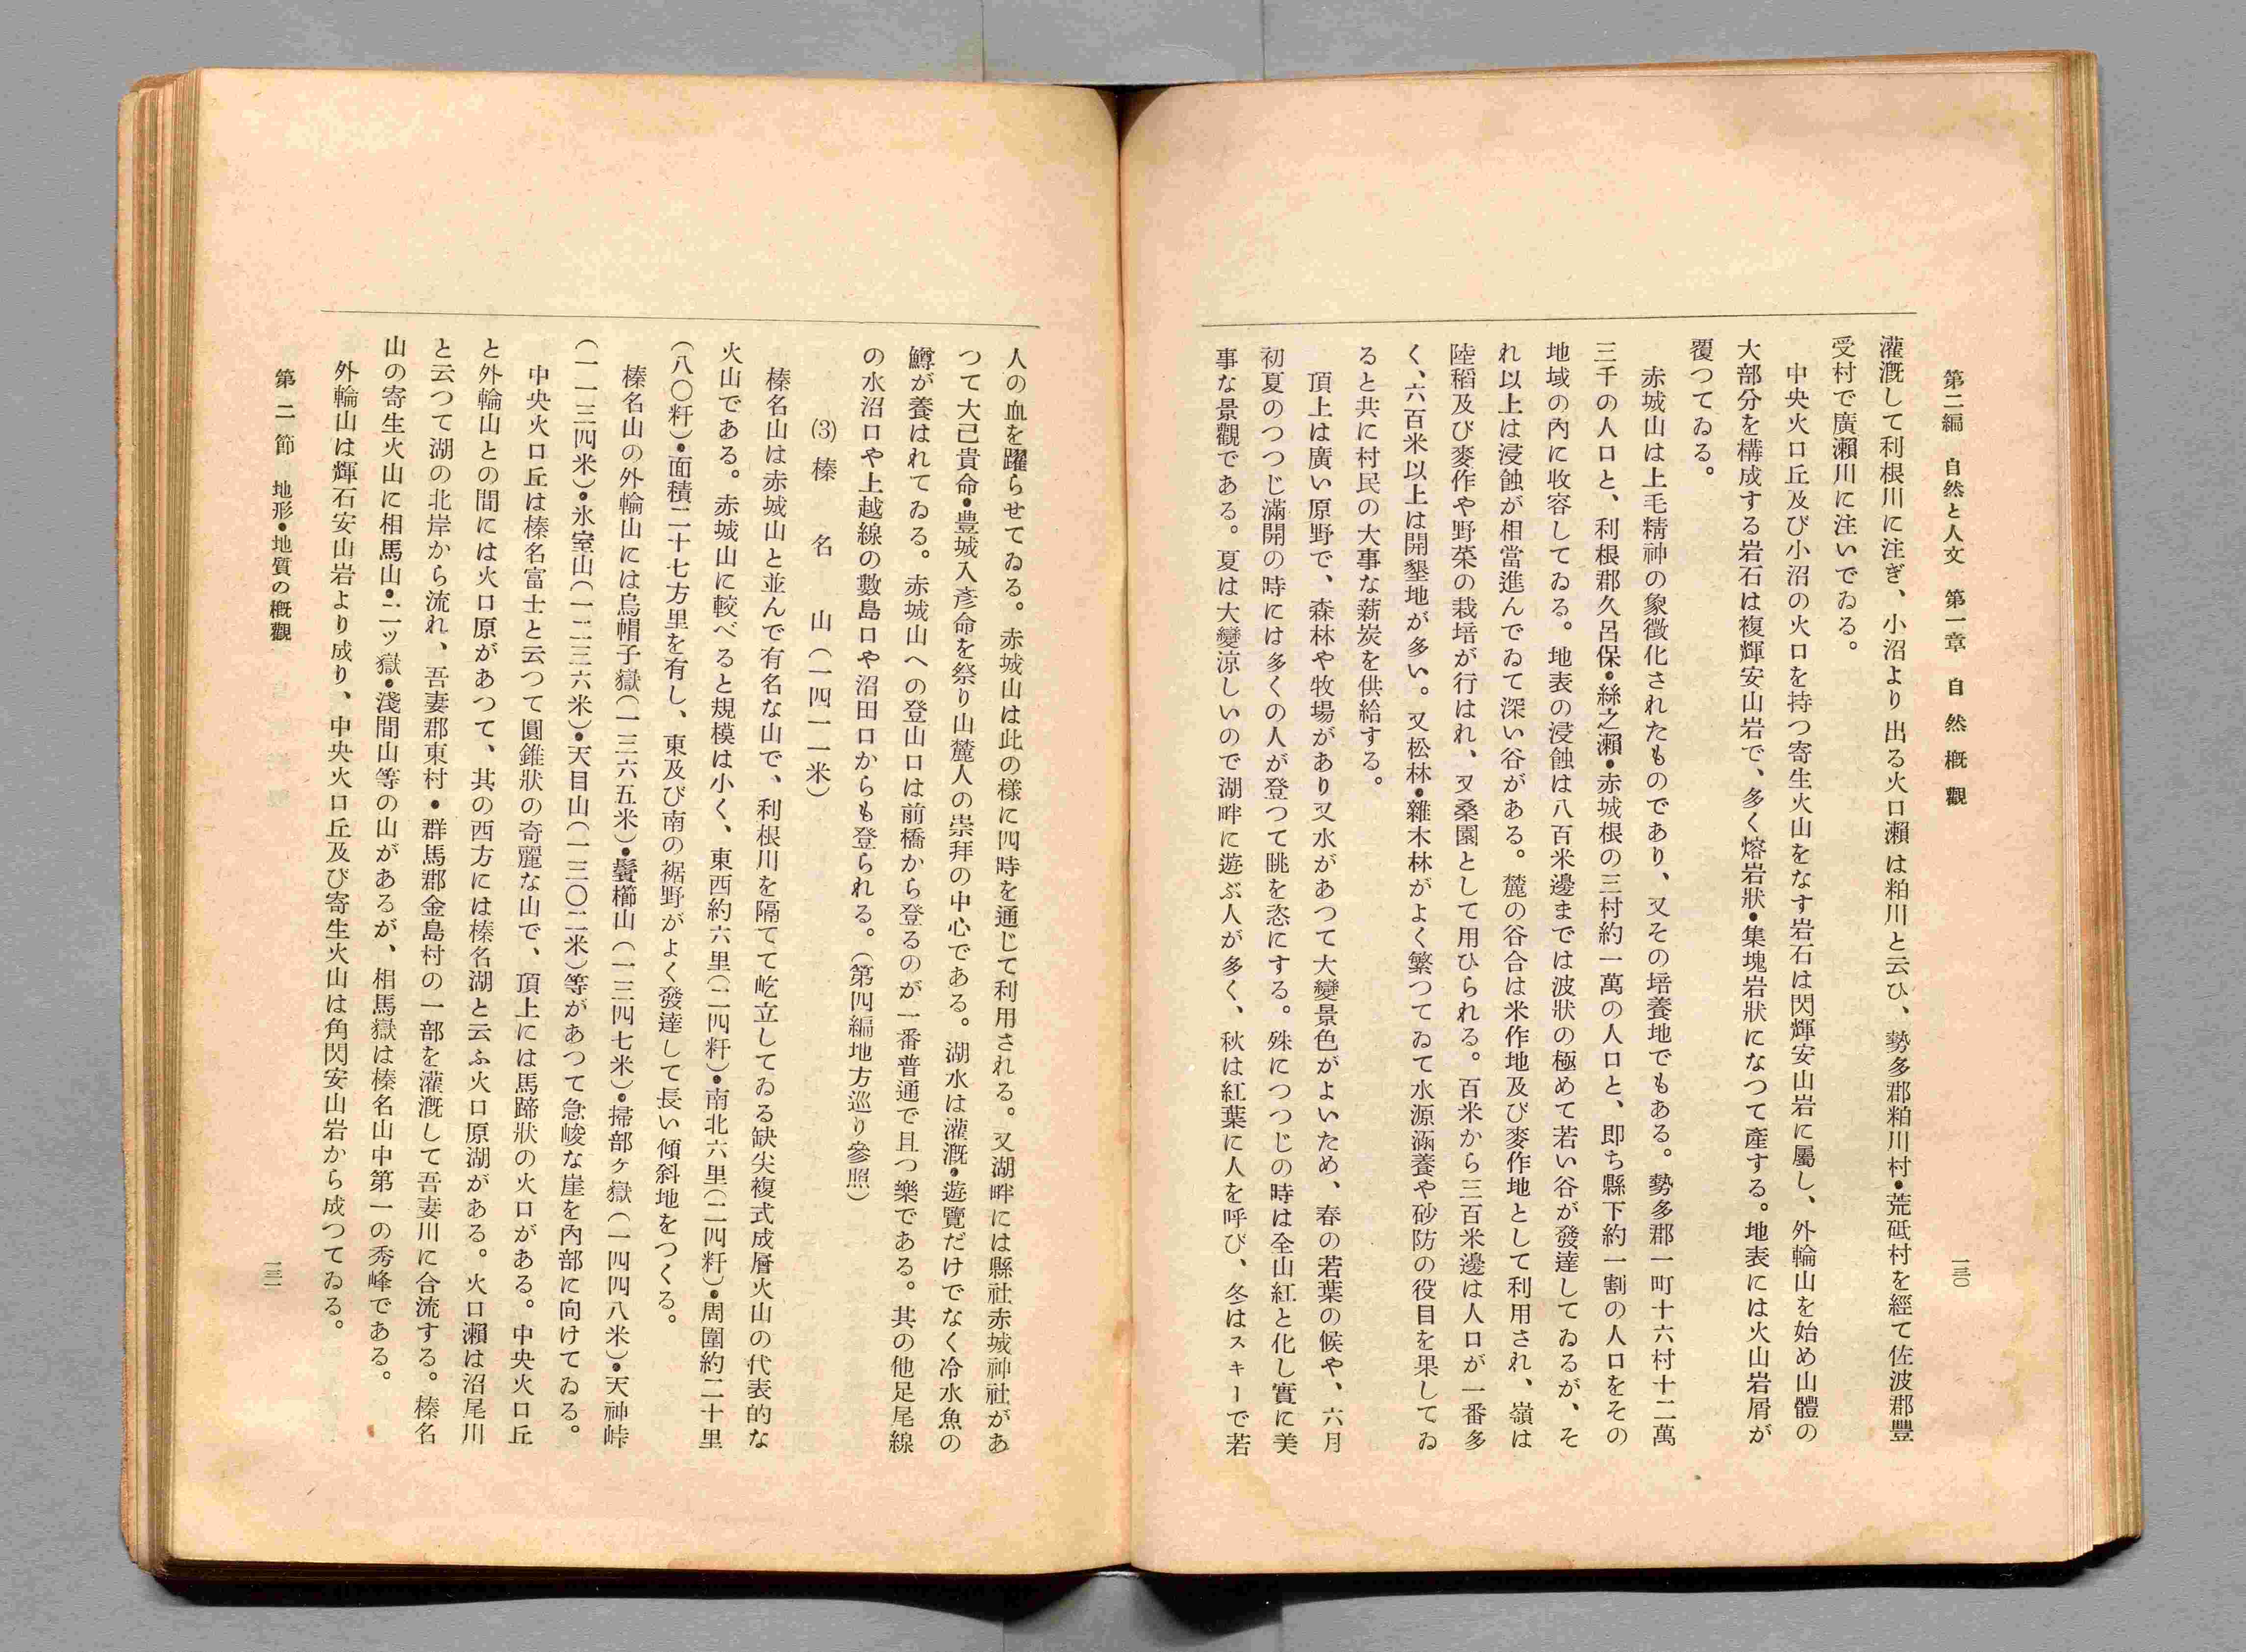 第二編　自然と人文　第一章　自然概觀
一三〇
灌漑して利根川に注ぎ、小沼より出る火口瀨は粕川と云ひ、勢多郡粕川村・荒砥村を經て佐波郡豐
受村で廣瀨川に注いでゐる。
中央火口丘及び小沼の火口を持つ寄生火山をなす岩石は閃輝安山岩に屬し、外輪山を始め山體の
大部分を構成する岩石は複輝安山岩で、多く熔岩狀・集塊岩狀になつて產する。地表には火山岩屑が
覆つてゐる。
赤城山は上毛精神の象徵化されたものであり、又その培養地でもある。勢多郡一町十六村十二萬
三千の人口と、利根郡久呂保・絲之瀨・赤城根の三村約一萬の人口と、卽ち縣下約一割の人口をその
地域の內に收容してゐる。地表の浸蝕は八百米邊までは波狀の極めて若い谷が發達してゐるが、そ
れ以上は浸蝕が相當進んでゐて深い谷がある。麓の谷合は米作地及び麥作地として利用され、嶺は
陸稻及び麥作や野菜の栽培が行はれ、又桑園として用ひられる。百米から三百米邊は人口が一番多
く、六百米以上は開墾地が多い。又松林・雜木林がよく繁つてゐて水源涵養や砂防の役目を果してゐ
ると共に村民の大事な薪炭を供給する。
頂上は廣い原野で、森林や牧場があり又水があつて大變景色がよいため、春の若葉の候や、六月
初夏のつつじ滿開の時には多くの人が登つて眺を恣にする。殊につつじの時は全山紅と化し實に美
事な景觀である。夏は大變涼しいので湖畔に遊ぶ人が多く、秋は紅葉に人を呼び、冬はスキーで若
人の血を躍らせてゐる。赤城山は此の樣に四時を通じて利用される。又湖畔には縣社赤城神社があ
つて大己貴命・豊城入彥命を祭り山麓人の崇拜の中心である。湖水は灌漑・遊覽だけでなく冷水魚の
鱒が養はれてゐる。赤城山への登山口は前橋から登るのが一番普通で且つ樂である。其の他足尾線
の水沼口や上越線の數島口や沼田口からも登られる。（第四編地方巡り參照）
(3) 榛名山（一四一一米）
榛名山は赤城山と並んで有名な山で、利根川を隔てて屹立してゐる缺尖複式成層火山の代表的な
火山である。赤城山に較べると規模は小く、東西約六里（二四粁）・南北六里（二四粁）・周圍約二十里
（八〇粁）・面積二十七方里を有し、東及び南の裾野がよく發達して長い傾斜地をつくる。
榛名山の外輪山には烏帽子嶽（一三六五米）・鬢櫛山（一三四七米）・掃部ヶ嶽（一四四八米）・天神峠
（一一三四米）・氷室山（一二三六米）・天目山（一三〇二米）等があつて急峻な崖を內部に向けてゐる。
中央火口丘は榛名富士と云つて圓錐狀の奇麗な山で、頂上には馬蹄狀の火口がある。中央火口丘
と外輪山との間には火口原があつて、其の西方には榛名湖と云ふ火口原湖がある。火口瀨は沼尾川
と云つて湖の北岸から流れ、吾妻郡東村・群馬郡金島村の一部を灌漑して吾妻川に合流する。榛名
山の寄生火山に相馬山・二ッ嶽・淺間山等の山があるが、相馬嶽は榛名山中第一の秀峰である。
外輪山は輝石安山岩より成り、中央火口丘及び寄生火山は角閃安山岩から成つてゐる。
第二節　地形・地質の槪觀
一三一